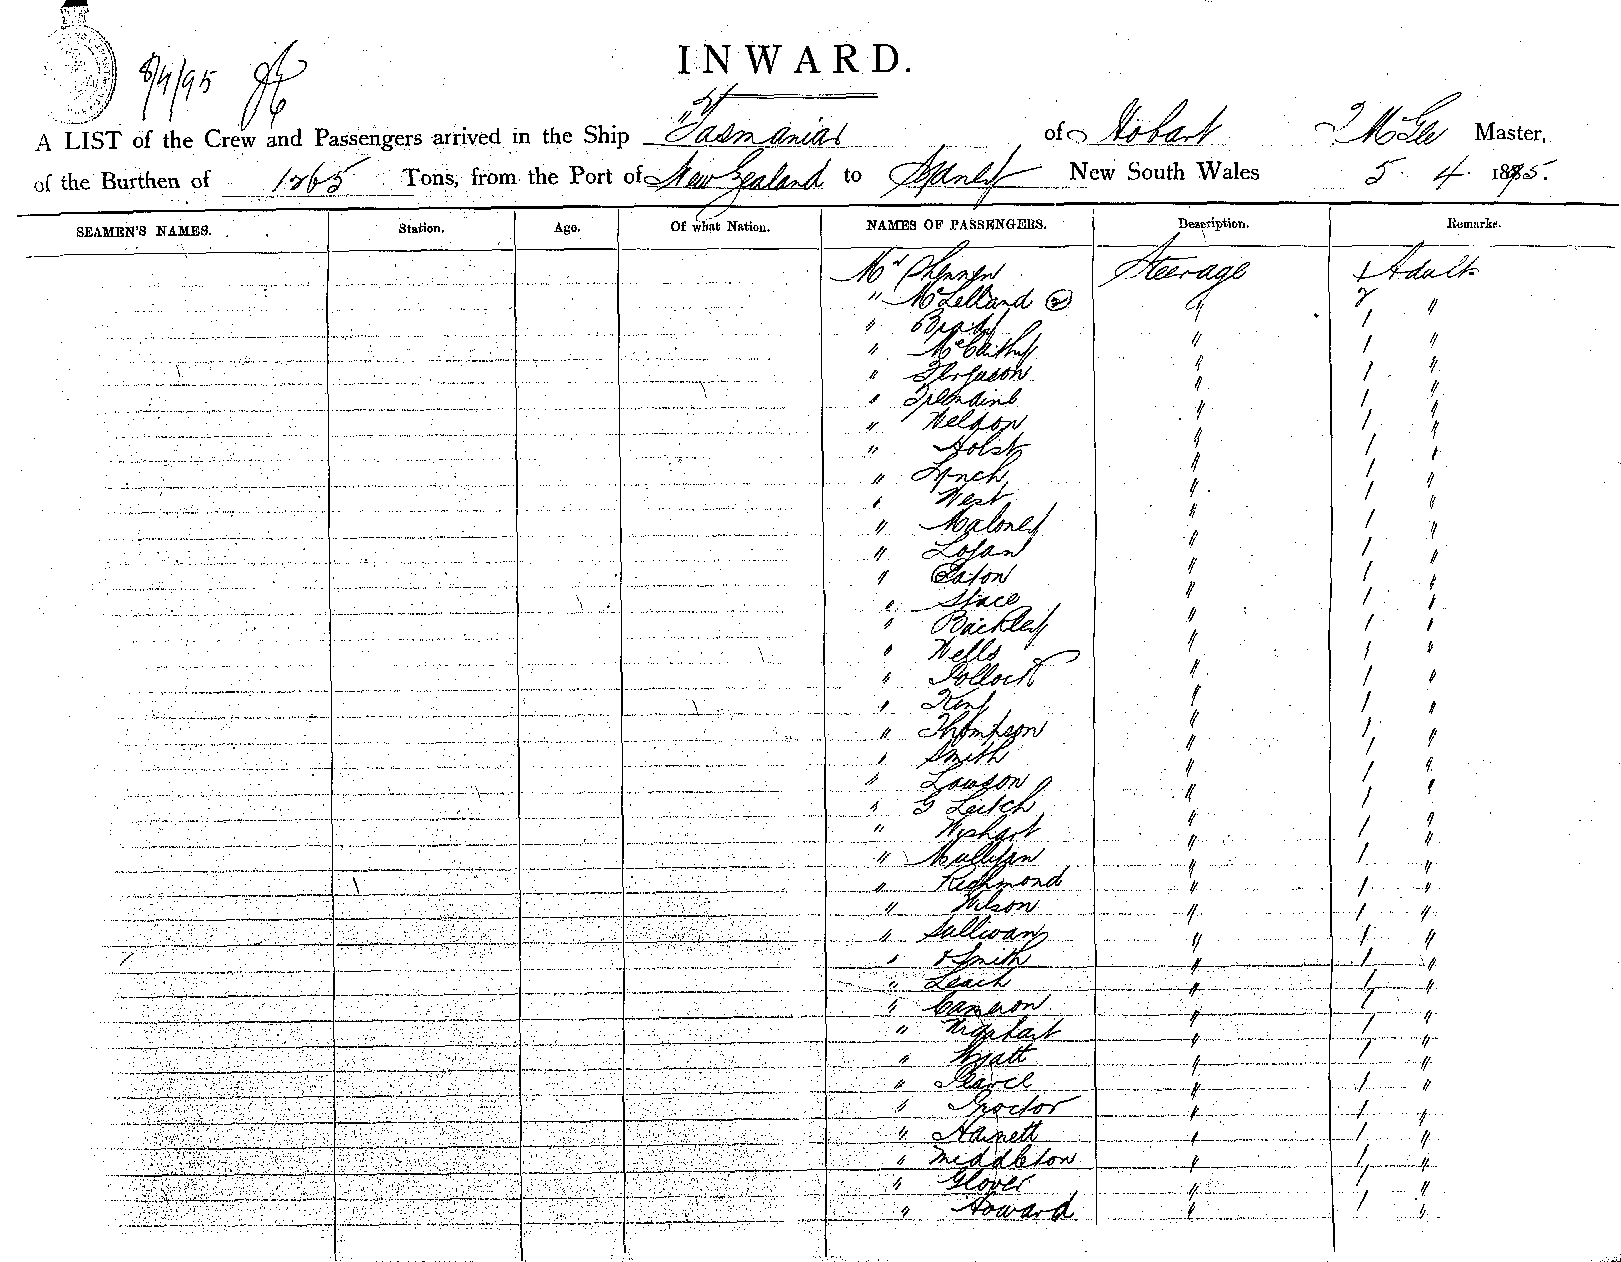 INWARD.
8/4/95
A LIST of the Crew and Passengers arrived in the Ship "Tasmania" of Hobart T McGee Master,
of the Burthen of 1265 Tons, from the Port of New Zealand to Sydney New South Wales 5. 4. 1895.
SEAMEN'S NAMES. Station. Age. Of what Nation. NAMES OF PASSENGERS. Description. Remarks.
Mr Steerage 1 Adult
" McLelland (2) " 2 "
" Brady " 1 "
" McCarthy " 1 "
" Ferguson " 1 "
" " 1 "
" Weldon " 1 "
" Holst " 1 "
" Lynch " 1 "
" West " 1 "
" Maloney " 1 "
" Logan " 1 "
" Eaton " 1 "
" Stace " 1 "
" Buckley " 1 "
" Wells " 1 "
" Pollock " 1 "
" Kent " 1 "
" Thompson " 1 "
" Smith " 1 "
" Lawson " 1 "
" G Leitch " 1 "
" Wishart " 1 "
" Mulligan " 1 "
" Richmond " 1 "
" Wilson " 1 "
" Sullivan " 1 "
" Smith " 1 "
" Leach " 1 "
" Cameron " 1 "
" Urquhart " 1 "
" Wyatt " 1 "
" Pearce " 1 "
" Proctor " 1 "
" Harnett " 1 "
" Middleton " 1 "
" Glover " 1 "
" Howard " 1 "